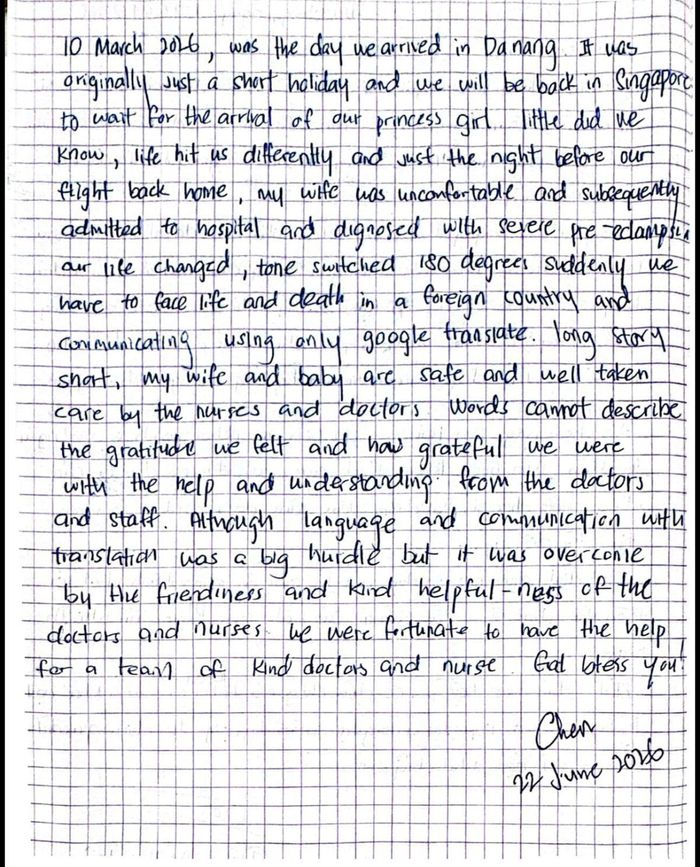 10 March 2026, was the day we arrived in Danang. It was
originally just a short holiday and we will be back in Singapore
to wait for the arrival of our princess girl. little did we
know, life hit us differently and just the night before our
flight back home, my wife was uncomfortable and subsequently
admitted to hospital and dignosed with severe pre-eclampsia
our life changed, tone switched 180 degrees suddenly we
have to face life and death in a foreign country and
communicating using only google translate. long story
short, my wife and baby are safe and well taken
care by the nurses and doctors words cannot describe
the gratitude we felt and how grateful we were
with the help and understanding from the doctors
and staff. Although language and communication with
translation was a big hurdle but it was overcome
by the friendiness and kind helpful-ness of the
doctors and nurses. we were fortunate to have the help
for a team of kind doctors and nurse. God bless you!
Chen
22 June 2026